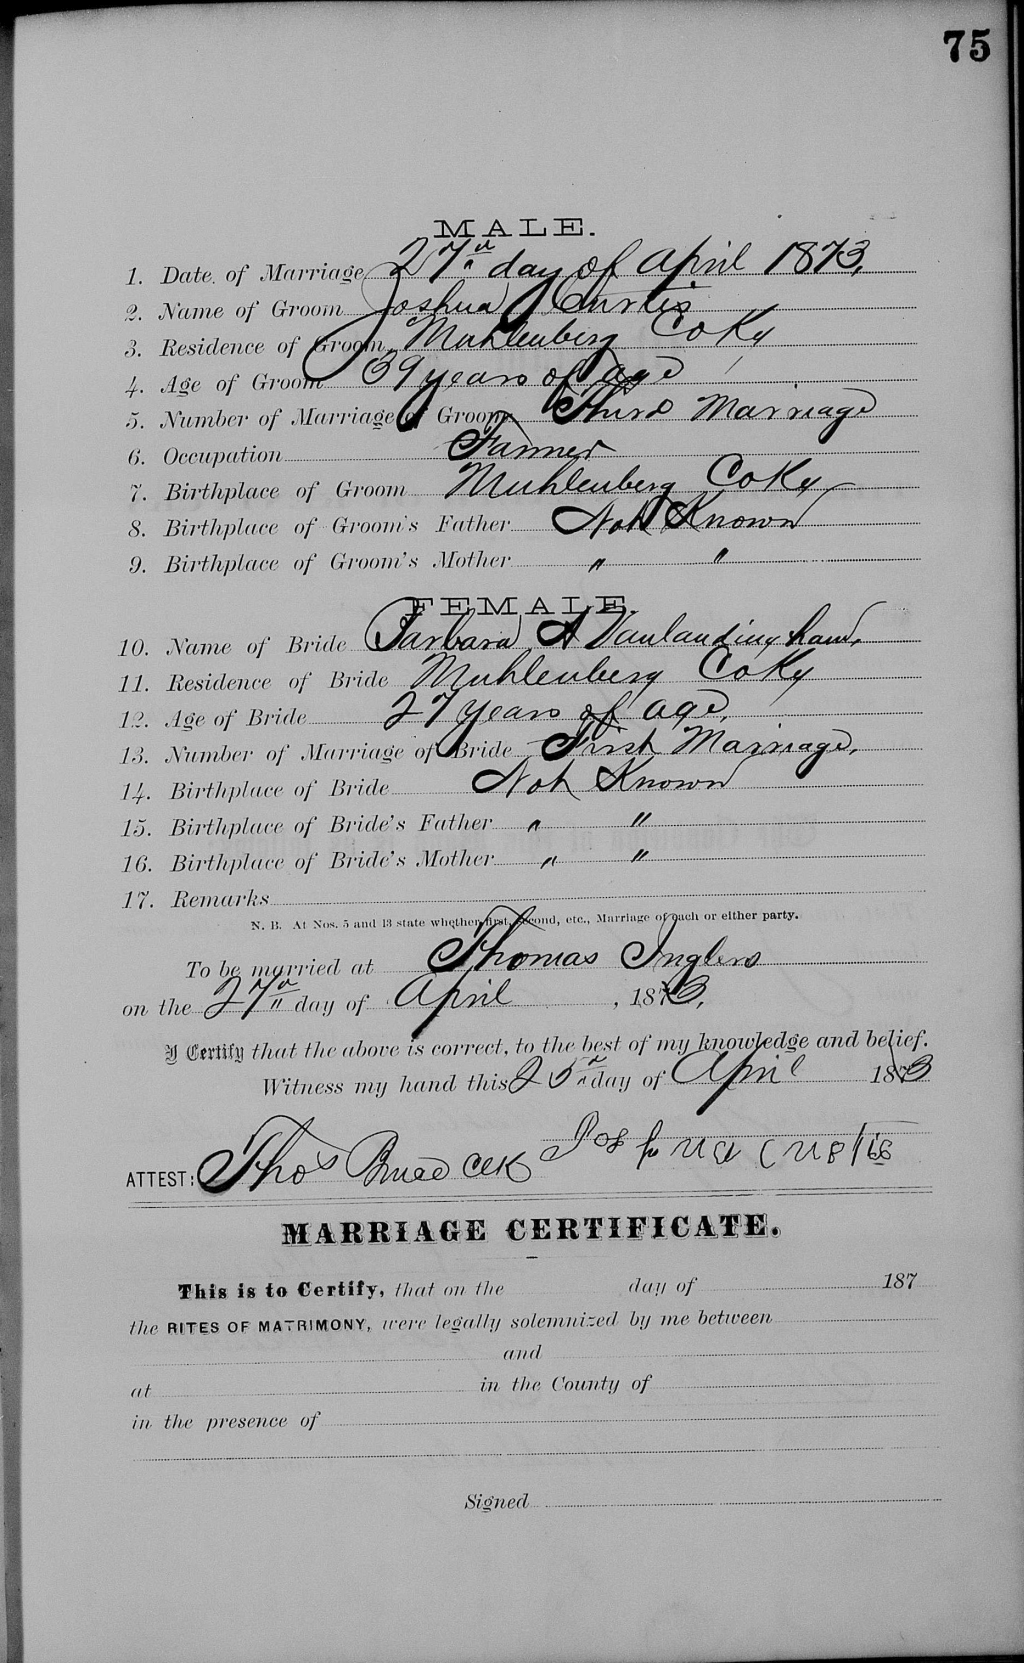 75
MALE.
1. Date of Marriage 27" day of April 1873,
2. Name of Groom Joshua Curtis
3. Residence of Groom Muhlenberg Co Ky
4. Age of Groom 39 years of age
5. Number of Marriage of Groom Third Marriage
6. Occupation Farmer
7. Birthplace of Groom Muhlenberg Co Ky
8. Birthplace of Groom's Father Not Known
9. Birthplace of Groom's Mother " "
FEMALE.
10. Name of Bride Barbara A Vanlandingham,
11. Residence of Bride Muhlenberg Co Ky
12. Age of Bride 27 years of age,
13. Number of Marriage of Bride First Marriage,
14. Birthplace of Bride Not Known
15. Birthplace of Bride's Father " "
16. Birthplace of Bride's Mother " "
17. Remarks
N. B. At Nos. 5 and 13 state whether first, second, etc., Marriage of each or either party.
To be married at Thomas Inglers
on the 27" day of April, 1873,
I Certify that the above is correct, to the best of my knowledge and belief.
Witness my hand this 25" day of April 1873
Joshua Curtis
ATTEST: Thos Clk
MARRIAGE CERTIFICATE.
This is to Certify, that on the day of 187
the RITES OF MATRIMONY, were legally solemnized by me between
and
at in the County of
in the presence of
Signed